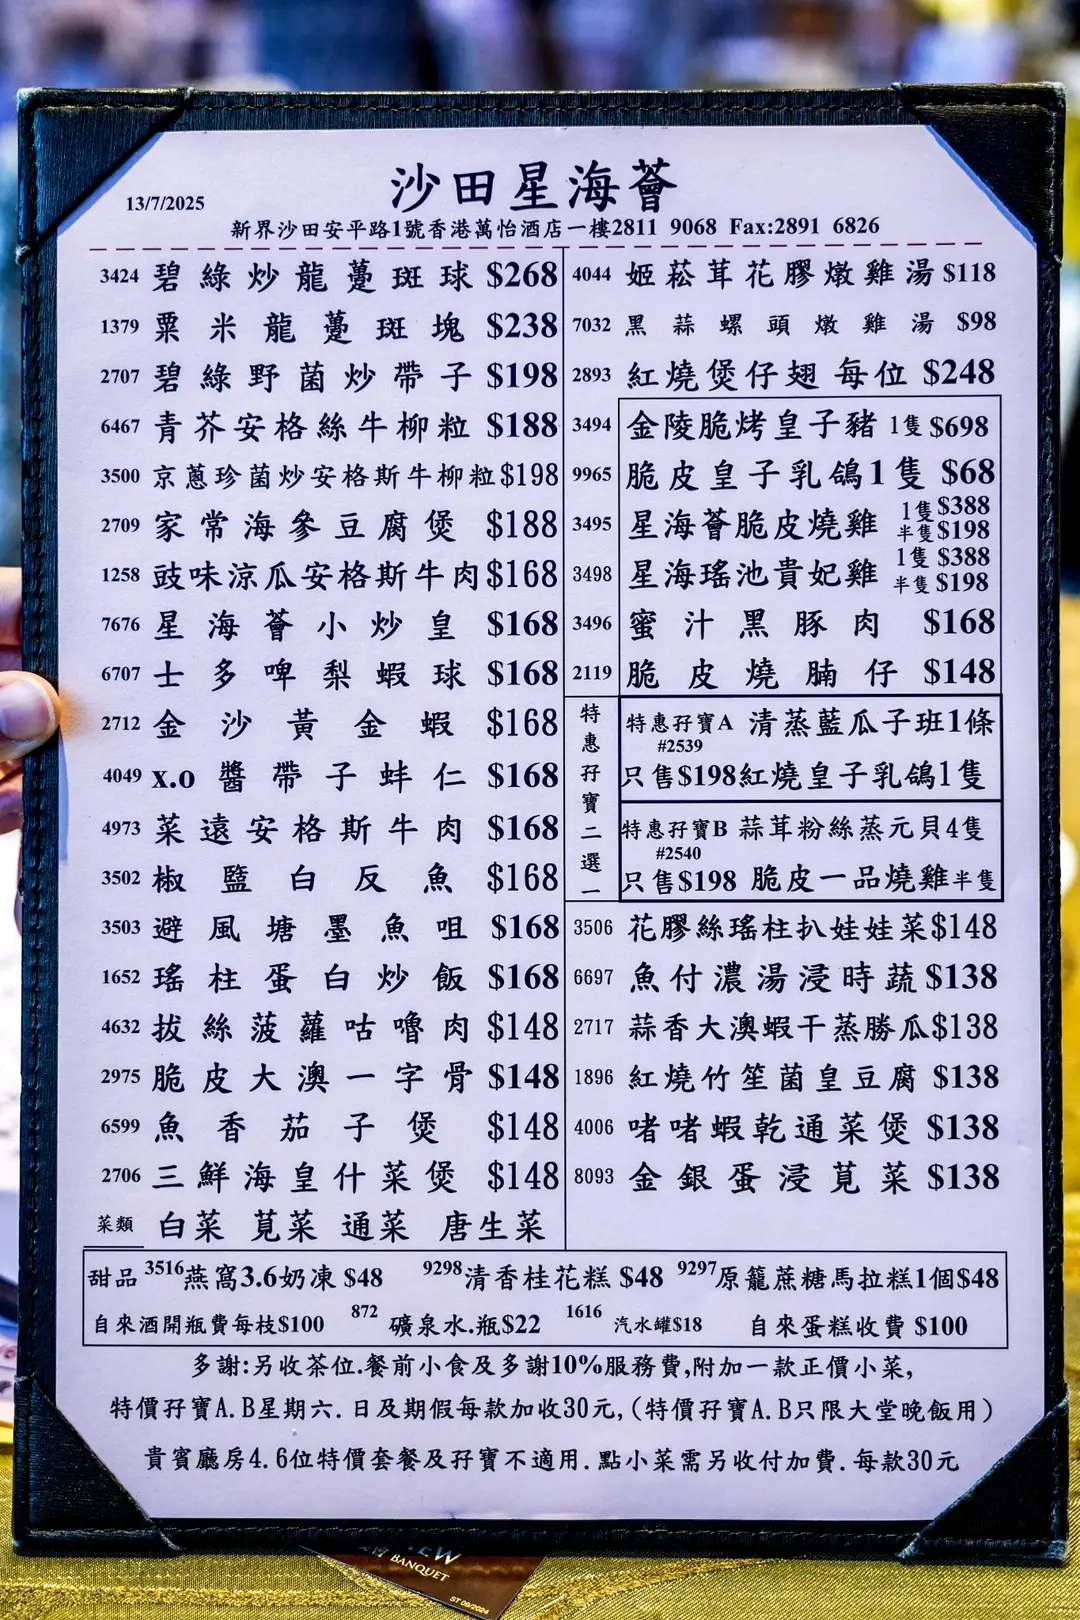 沙田星海薈
13/7/2025
新界沙田安平路1號香港萬怡酒店一樓2811 9068 Fax:2891 6826
3424 碧綠炒龍躉斑球 $268
1379 粟米龍躉斑塊 $238
2707 碧綠野菌炒帶子 $198
6467 青芥安格絲牛柳粒 $188
3500 京蔥珍菌炒安格斯牛柳粒 $198
2709 家常海參豆腐煲 $188
1258 豉味涼瓜安格斯牛肉 $168
7676 星海薈小炒皇 $168
6707 士多啤梨蝦球 $168
2712 金沙黃金蝦 $168
4049 x.o醬帶子蚌仁 $168
4973 菜遠安格斯牛肉 $168
3502 椒鹽白反魚 $168
3503 避風塘墨魚咀 $168
1652 瑤柱蛋白炒飯 $168
4632 拔絲菠蘿咕嚕肉 $148
2975 脆皮大澳一字骨 $148
6599 魚香茄子煲 $148
2706 三鮮海皇什菜煲 $148
菜類 白菜 莧菜 通菜 唐生菜
4044 姬菘茸花膠燉雞湯 $118
7032 黑蒜螺頭燉雞湯 $98
2893 紅燒煲仔翅 每位 $248
3494 金陵脆烤皇子豬 1隻 $698
9965 脆皮皇子乳鴿1隻 $68
3495 星海薈脆皮燒雞 1隻 $388
半隻 $198
3498 星海瑤池貴妃雞 1隻 $388
半隻 $198
3496 蜜汁黑豚肉 $168
2119 脆皮燒腩仔 $148
特惠孖寶二選一
特惠孖寶A 清蒸藍瓜子班1條
#2539
只售$198紅燒皇子乳鴿1隻
特惠孖寶B 蒜茸粉絲蒸元貝4隻
#2540
只售$198 脆皮一品燒雞半隻
3506 花膠絲瑤柱扒娃娃菜 $148
6697 魚付濃湯浸時蔬 $138
2717 蒜香大澳蝦干蒸勝瓜 $138
1896 紅燒竹笙菌皇豆腐 $138
4006 啫啫蝦乾通菜煲 $138
8093 金銀蛋浸莧菜 $138
甜品 3516燕窩3.6奶凍 $48 9298清香桂花糕 $48 9297原籠蔗糖馬拉糕1個$48
自來酒開瓶費每枝$100 872 礦泉水.瓶$22 1616 汽水罐$18 自來蛋糕收費 $100
多謝:另收茶位.餐前小食及多謝10%服務費,附加一款正價小菜,
特價孖寶A.B星期六.日及期假每款加收30元,(特價孖寶A.B只限大堂晚飯用)
貴賓廳房4.6位特價套餐及孖寶不適用.點小菜需另收付加費.每款30元
BANQUET
ST 09/2024